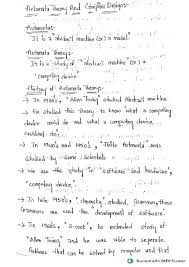 Automata Theory And Compiler Design:-
Automata:-
It is a "abstract machine (or) a model"
Automata Theory:-
It is a study of "abstract machine (or) a
"computing device"
History of Automata Theory:-
→ In 1930's, "Allen Turing" studied Abstract machine.
→ He studied this theory to know what a computing
device could do and what a computing device
couldn't do.
→ In 1940's and 1950's, "Finite Automata" was
studied by some scientists
→ We use the study in "software" and hardware,
"computing device".
→ In late 1950's, "chomsky" studied grammar, these
Grammars are used the development of software.
→ In 1960's, "S-cook" he extended study of
"Allen Turing" and he was able to seperate
Problems that can be solved by computer and that
Scanned with OKEN Scanner